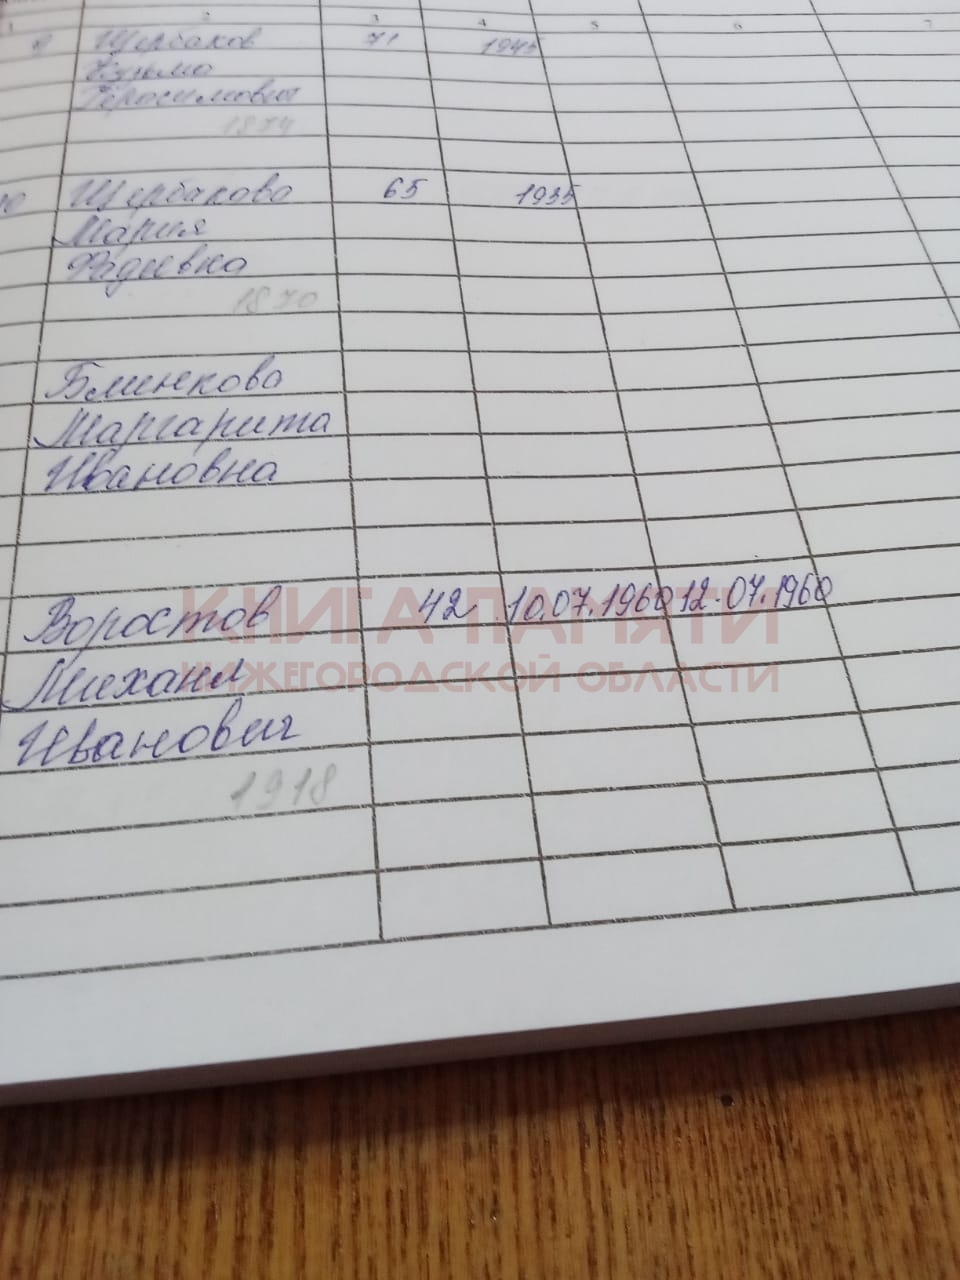 1 2 3 4 5 6 7
9 Щербаков 71 1945
Кузьма
Герасимович
1874
10 Щербакова 65 1935
Мария
Фадеевна
1870
Блинкова
Маргарита
Ивановна
Воростов 42 10.07.1960 12.07.1960
КНИГА ПАМЯТИ
Михаил
НИЖЕГОРОДСКОЙ ОБЛАСТИ
Иванович
1918